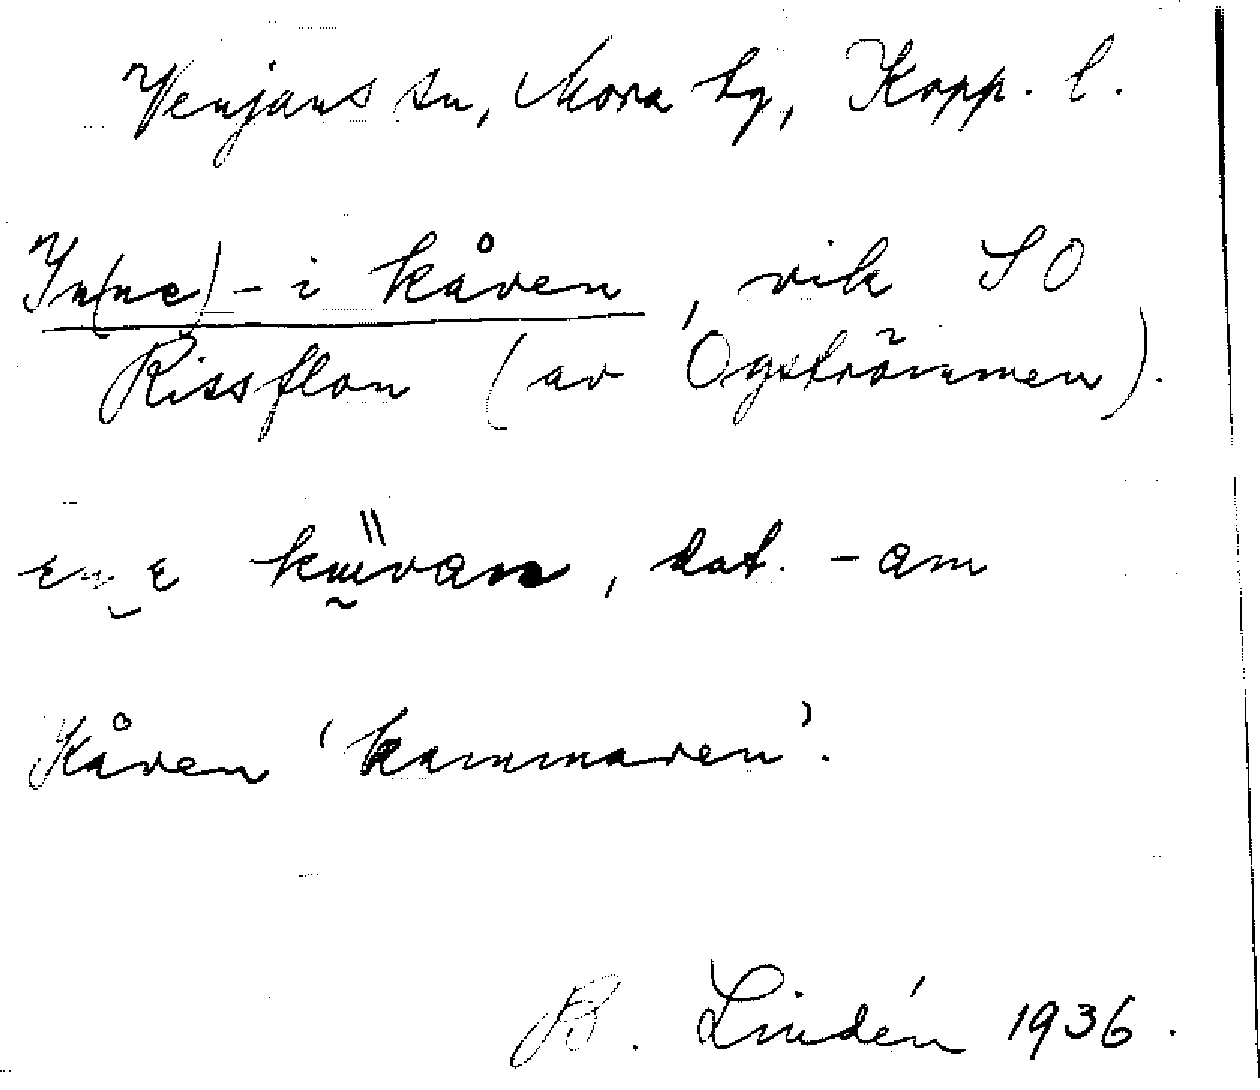 Venjans sn, Mora hg, Kopp. l.
In(ne)-i kåven, vik SO
Rissflon (av Ogströmmen).
dat. -am
Kåven 'kammaren'.
B. Lindén 1936.